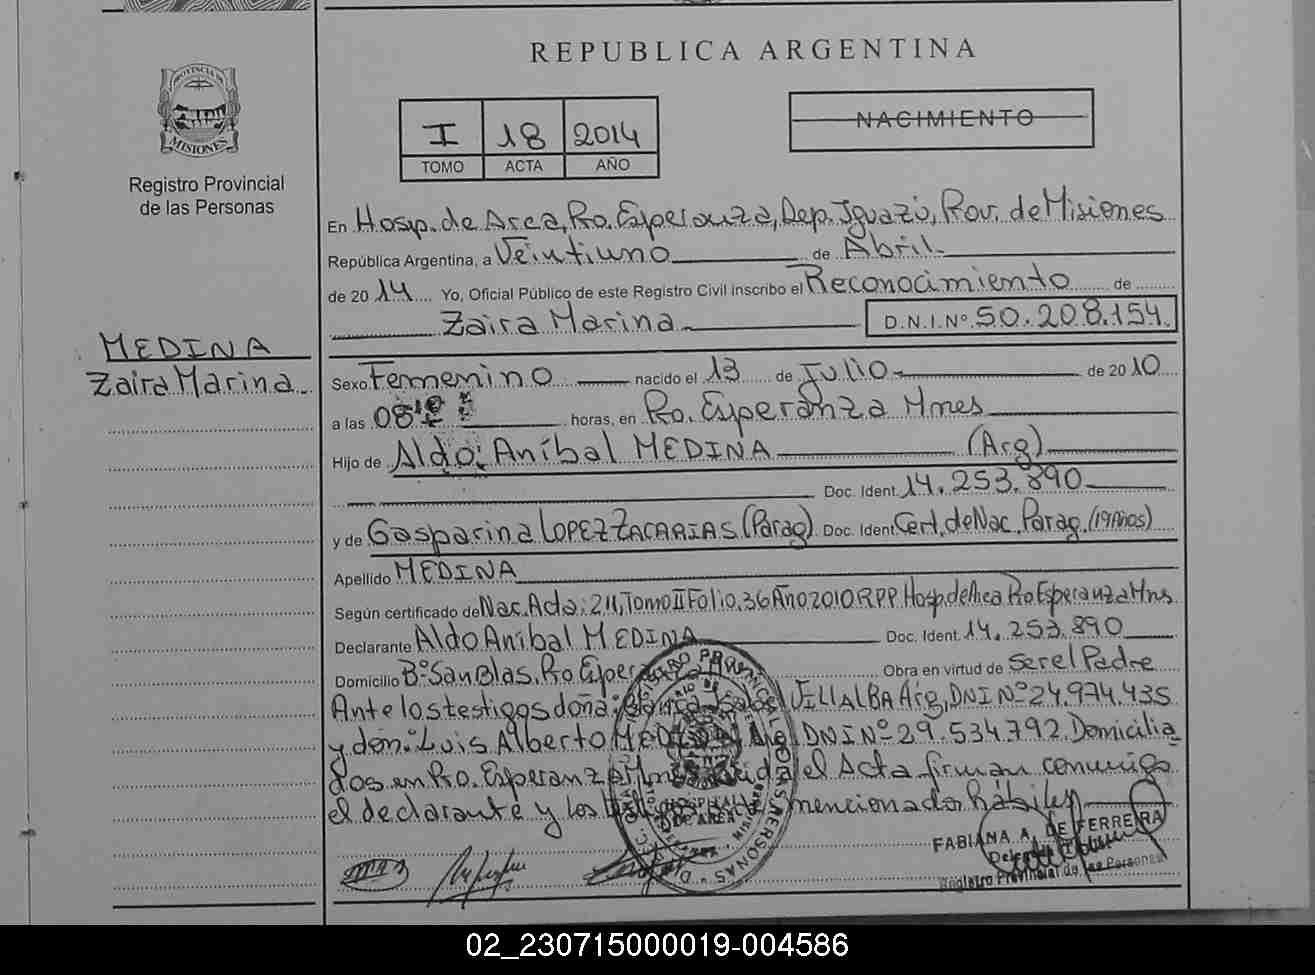 REPUBLICA ARGENTINA
PROVINCIA DE
MISIONES
Registro Provincial
de las Personas
I 18 2014
TOMO ACTA AÑO
NACIMIENTO
En Hosp. de Area, Pto. Esperanza, Dep. Iguazú, Prov. de Misiones
República Argentina, a Veintiuno de Abril
de 2014 Yo, Oficial Público de este Registro Civil inscribo el Reconocimiento de
Zaira Marina D.N.I.Nº.50.208.154.
MEDINA
Zaira Marina
Sexo Femenino nacido el 13 de Julio de 2010
a las 08 horas, en Pto. Esperanza Mnes
Hijo de Aldo Aníbal MEDINA (Arg)
Doc. Ident. 14.253.890
y de Gasparina LOPEZ ZACARIAS (Parag) Doc. Ident. Cert. de Nac. Parag. (19 Años)
Apellido MEDINA
Según certificado de Nac. Acta: 211, Tomo II Folio. 36 Año 2010 R.P.P. Hosp. de Area Pto Esperanza Mns
Declarante Aldo Aníbal MEDINA Doc. Ident. 14.253.890
Domicilio Bº San Blas. Pto Esperanza Obra en virtud de ser el Padre
Ante los testigos doña: VILLALBA Arg, DNI Nº 24.974.435
y don: Luis Alberto MEDINA Arg DNI Nº 29.534.792. Domicilia
dos en Pto. Esperanza Mnes el Acta firman conmigo
el declarante y los mencionados hábiles
FABIANA A. DE FERREIRA
Delegada
Registro Provincial de las Personas
REGISTRO PROVINCIAL DE LAS PERSONAS
HOSPITAL
DE AREA
02_230715000019-004586